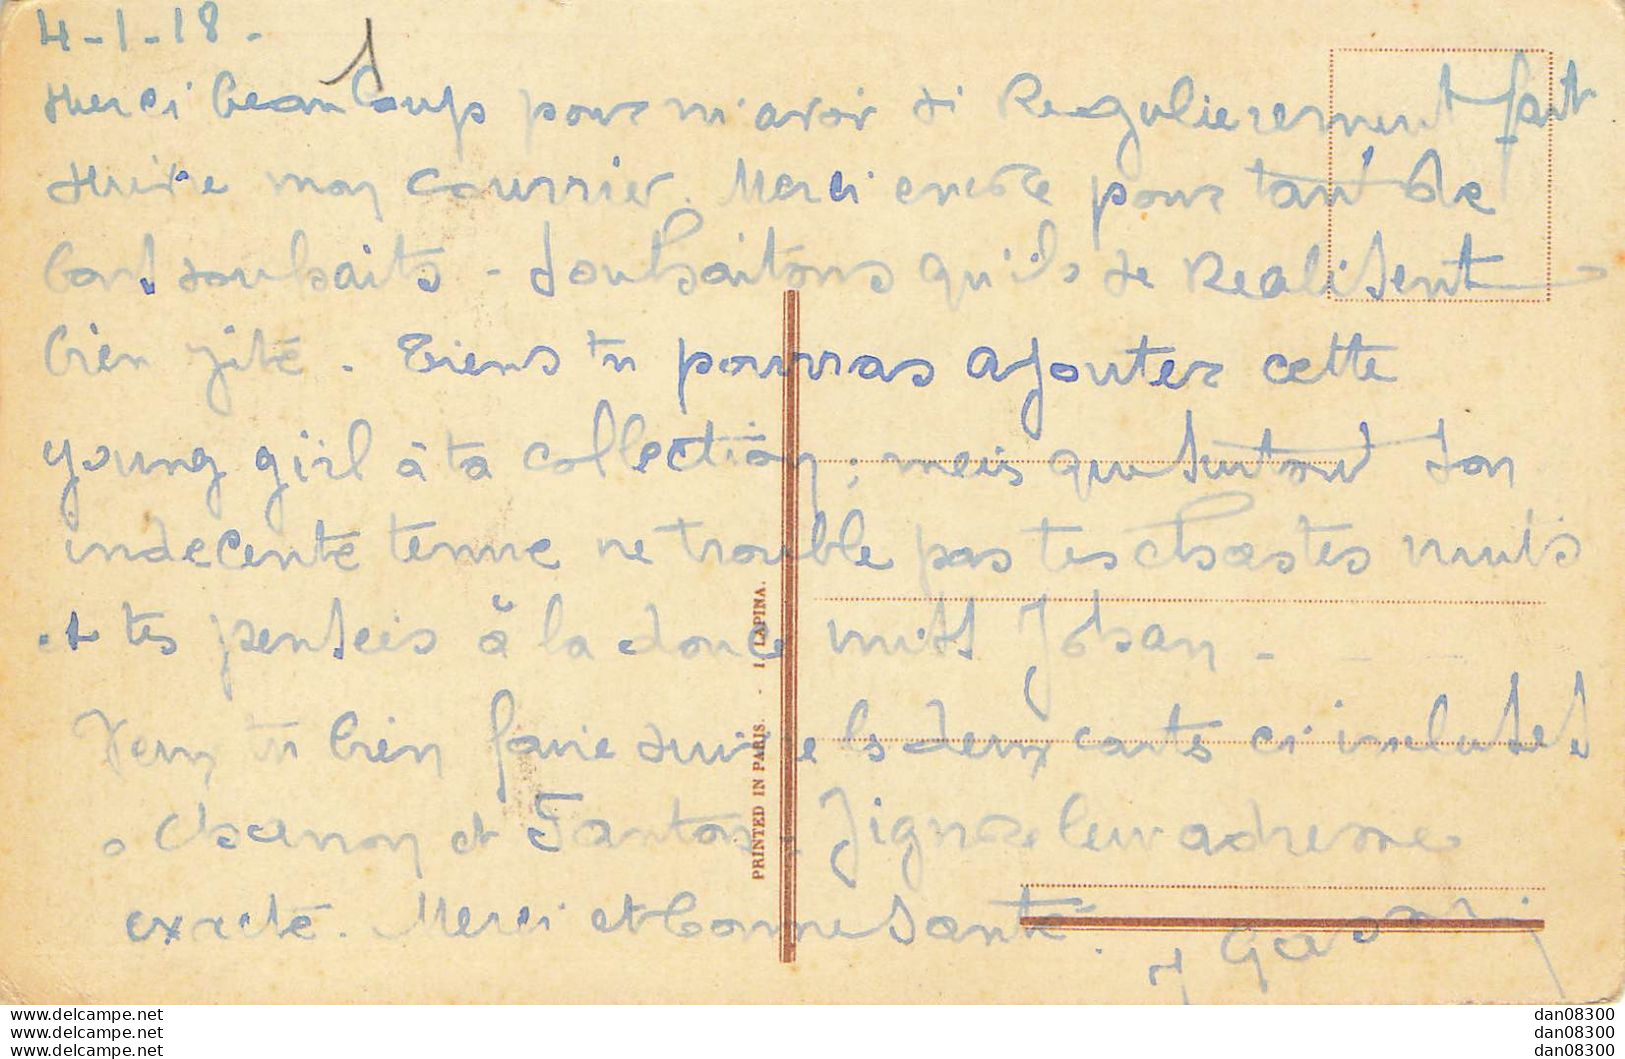 4-1-18.
Merci beaucoup pour m'avoir si Regulierement fait
suivre mon courrier. Merci encore pour tant de
bons souhaits - Souhaitons qu'ils se Realisent
bien vite. Tiens tu pourras ajouter cette
young girl à ta collection; mais que surtout son
indecente tenue ne trouble pas tes chastes nuits
et tes pensees à la douce miss Johan -
Veux tu bien faire suivre les deux cartes ci incluses
à Chanon et Santos. J'ignore leur adresse
exacte. Merci et bonne Santé.
PRINTED IN PARIS. - I. LAPINA.
www.delcampe.net
www.delcampe.net
www.delcampe.net
dan08300
dan08300
dan08300